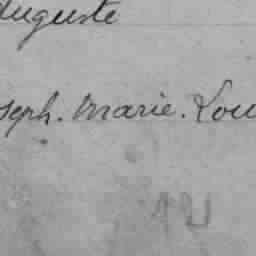 Auguste
seph. Marie. Lou